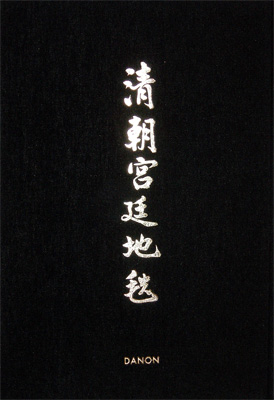 清朝宫廷地毯
DANON